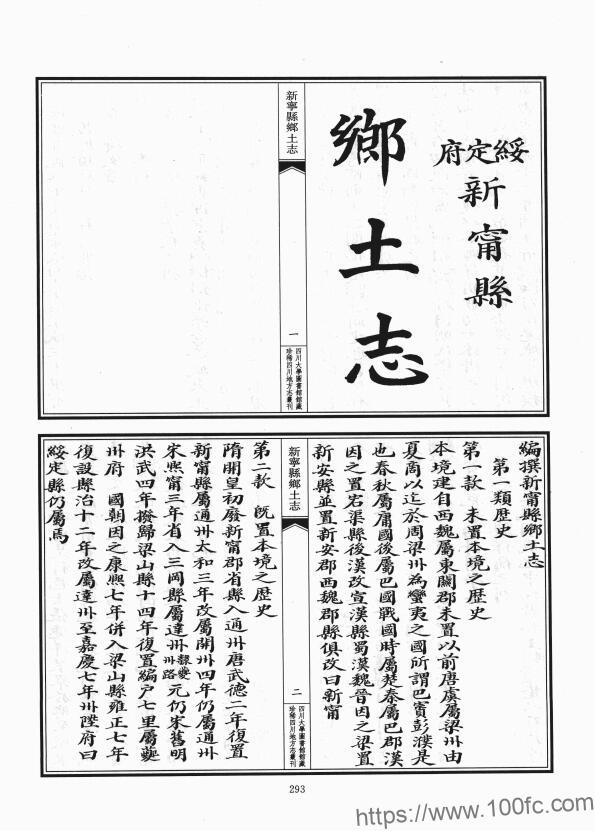 綏定府
新甯縣
鄉土志
新寧縣鄉土志
一
四川大學圖書館館藏
珍稀四川地方志叢刊
編撰新甯縣鄉土志
第一類歷史
第一款 未置本境之歷史
本境建自西魏屬東關郡未置以前唐虞屬梁州由
夏商以迄於周梁州為蠻夷之國所謂巴賨彭濮是
也春秋屬庸國後屬巴國戰國時屬楚秦屬巴郡漢
因之置宕渠縣後漢改宣漢縣蜀漢魏晉因之梁置
新安縣並置新安郡西魏郡縣俱改曰新甯
新寧縣鄉土志
二
四川大學圖書館館藏
珍稀四川地方志叢刊
第二款 既置本境之歷史
隋開皇初廢新甯郡省縣入通州唐武德二年復置
新甯縣屬通州太和三年改屬開州四年仍屬通州
宋熙甯三年省入三岡縣屬達州隸夔州路元仍宋舊明
洪武四年撥歸梁山縣十四年復置編户七里屬夔
州府 國朝因之康熙七年併入梁山縣雍正七年
復設縣治十二年改屬達州至嘉慶七年州陞府曰
綏定縣仍屬焉
293
https://www.100fc.com